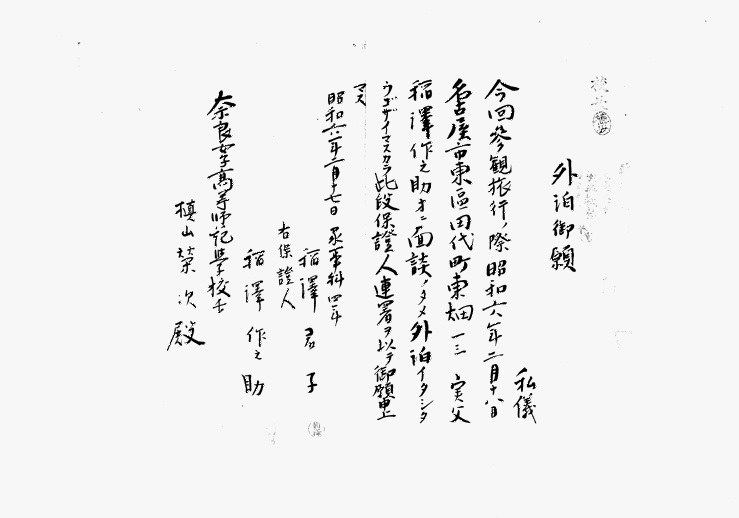 外泊御願
私儀
今回參観旅行ノ際昭和六年二月十八日
名古屋市東區田代町東畑一三 実父
稲澤作之助方ニ面談ノタメ外泊イタシタ
ウゴザイマスカラ此段保證人連署ヲ以テ御願申上
マス
昭和六年二月十七日 家事科四年
稲澤君子
右保證人
稲澤作之助
奈良女子高等師範學校長
槙山榮次殿